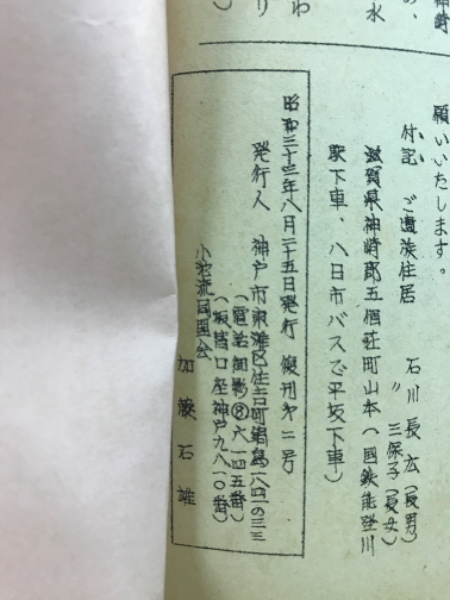 神崎
の、
水
わ
り
）
願いいたします。
付記　ご遺族住居　石川長広（長男）
〃　三保子（長女）
滋賀県神崎郡五個荘町山本（国鉄能登川
駅下車、八日市バスで平坂下車）
昭和三十三年八月二十五日発行　復刊才二号
発行人　神戸市東灘区住吉町鴨島一八四一の三三
（電話御影⑧六一四五番）
（振替口座神戸九八一〇番）
小池流同園会
加藤石雄